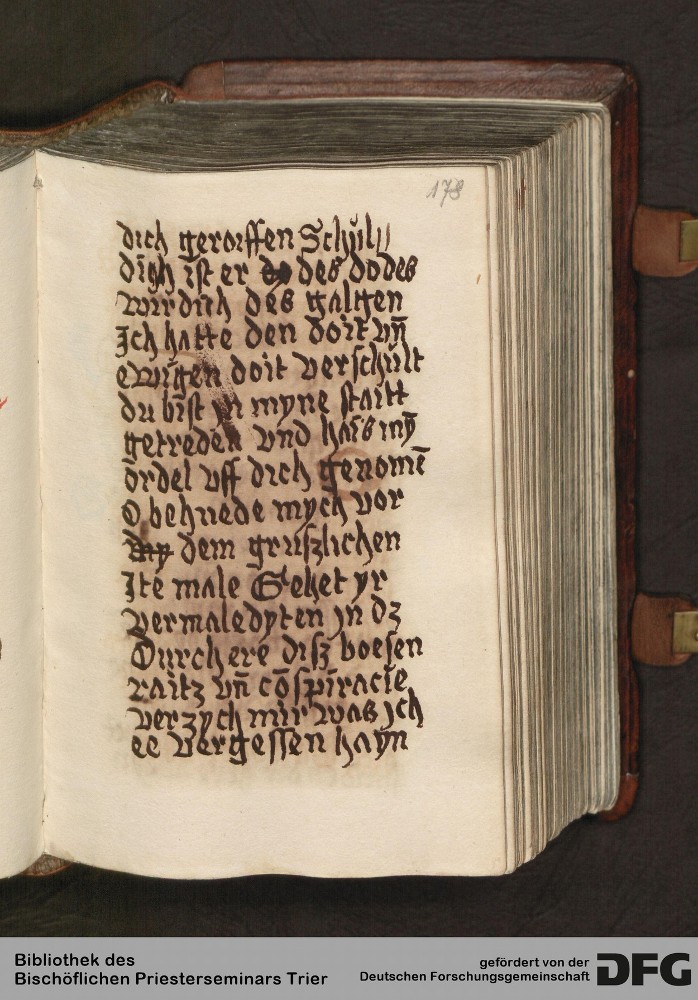 178
dich geroiffen Schul//
digh ist er des dodes
wirdich des galgen
Ich hatte den doit vn̄
ewigen doit verschult
du bist jn myne staitt
getreden vnd hais mȳ
ordel vff dich genomē
O behuede mych vor
dem gruszlichen
Ite male Gehet yr
vermaledyten jn dz
Durch ere disz boesen
raitz vn̄ cōspiracie
verzych mir was jch
ee vergessen hayn
Bibliothek des
Bischöflichen Priesterseminars Trier
gefördert von der
Deutschen Forschungsgemeinschaft
DFG